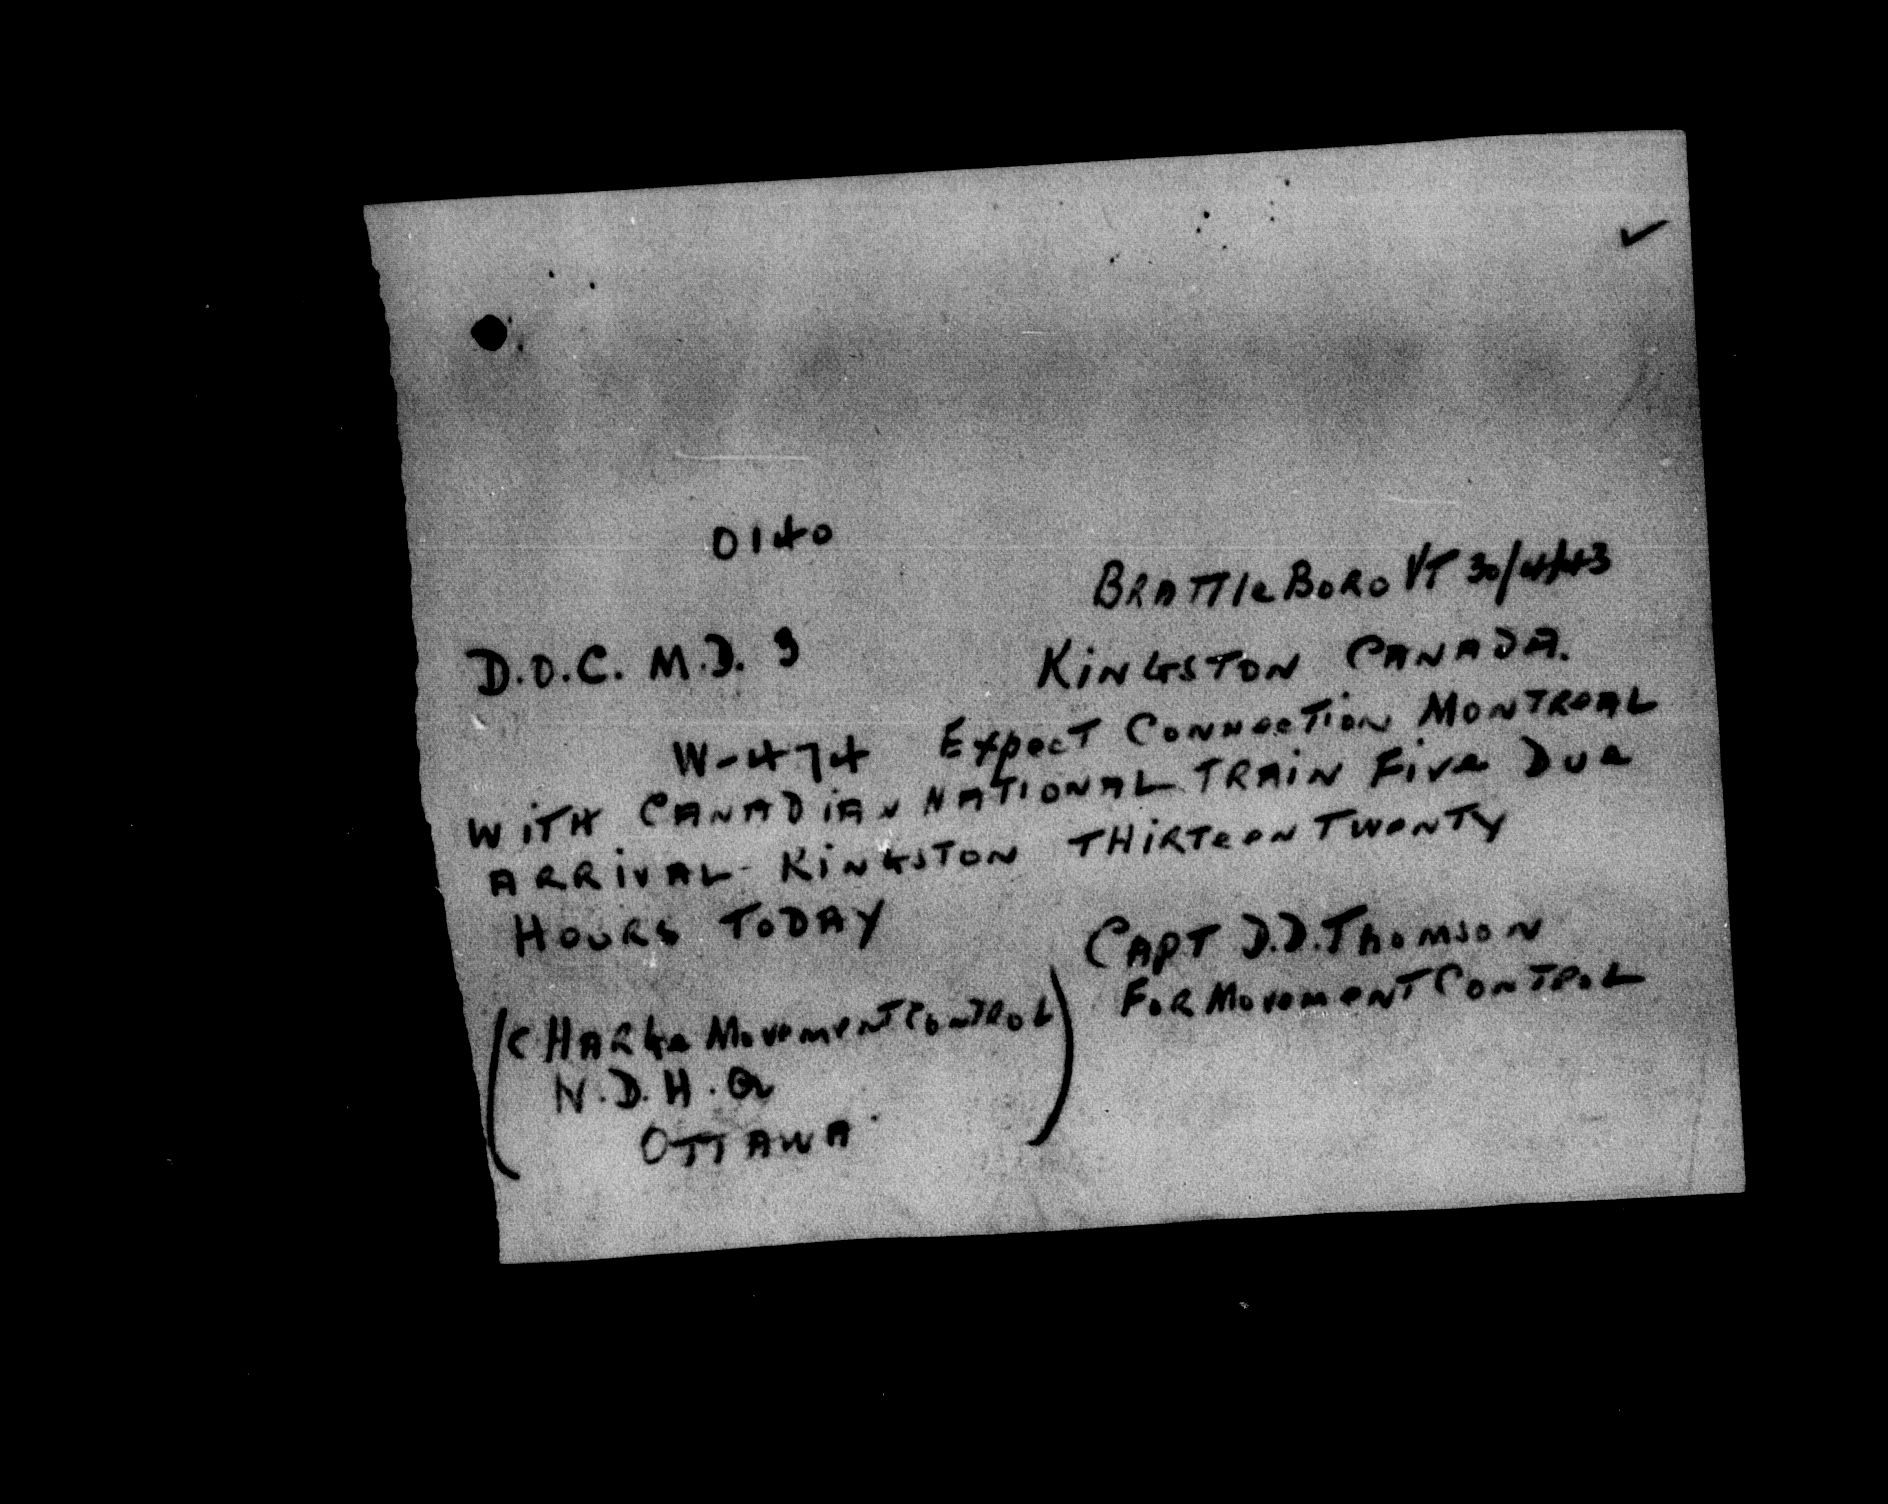 0140
BRATTLEBORO VT 30/4/43
D.O.C. M.D. 3 KINGSTON CANADA.
W-474 EXPECT CONNECTION MONTREAL
WITH CANADIAN NATIONAL TRAIN FIVE DUE
ARRIVAL KINGSTON THIRTEEN TWENTY
HOURS TODAY
CAPT D.D. THOMSON
FOR MOVEMENT CONTROL
(CHARGE MOVEMENT CONTROL)
N.D.H.Q
OTTAWA